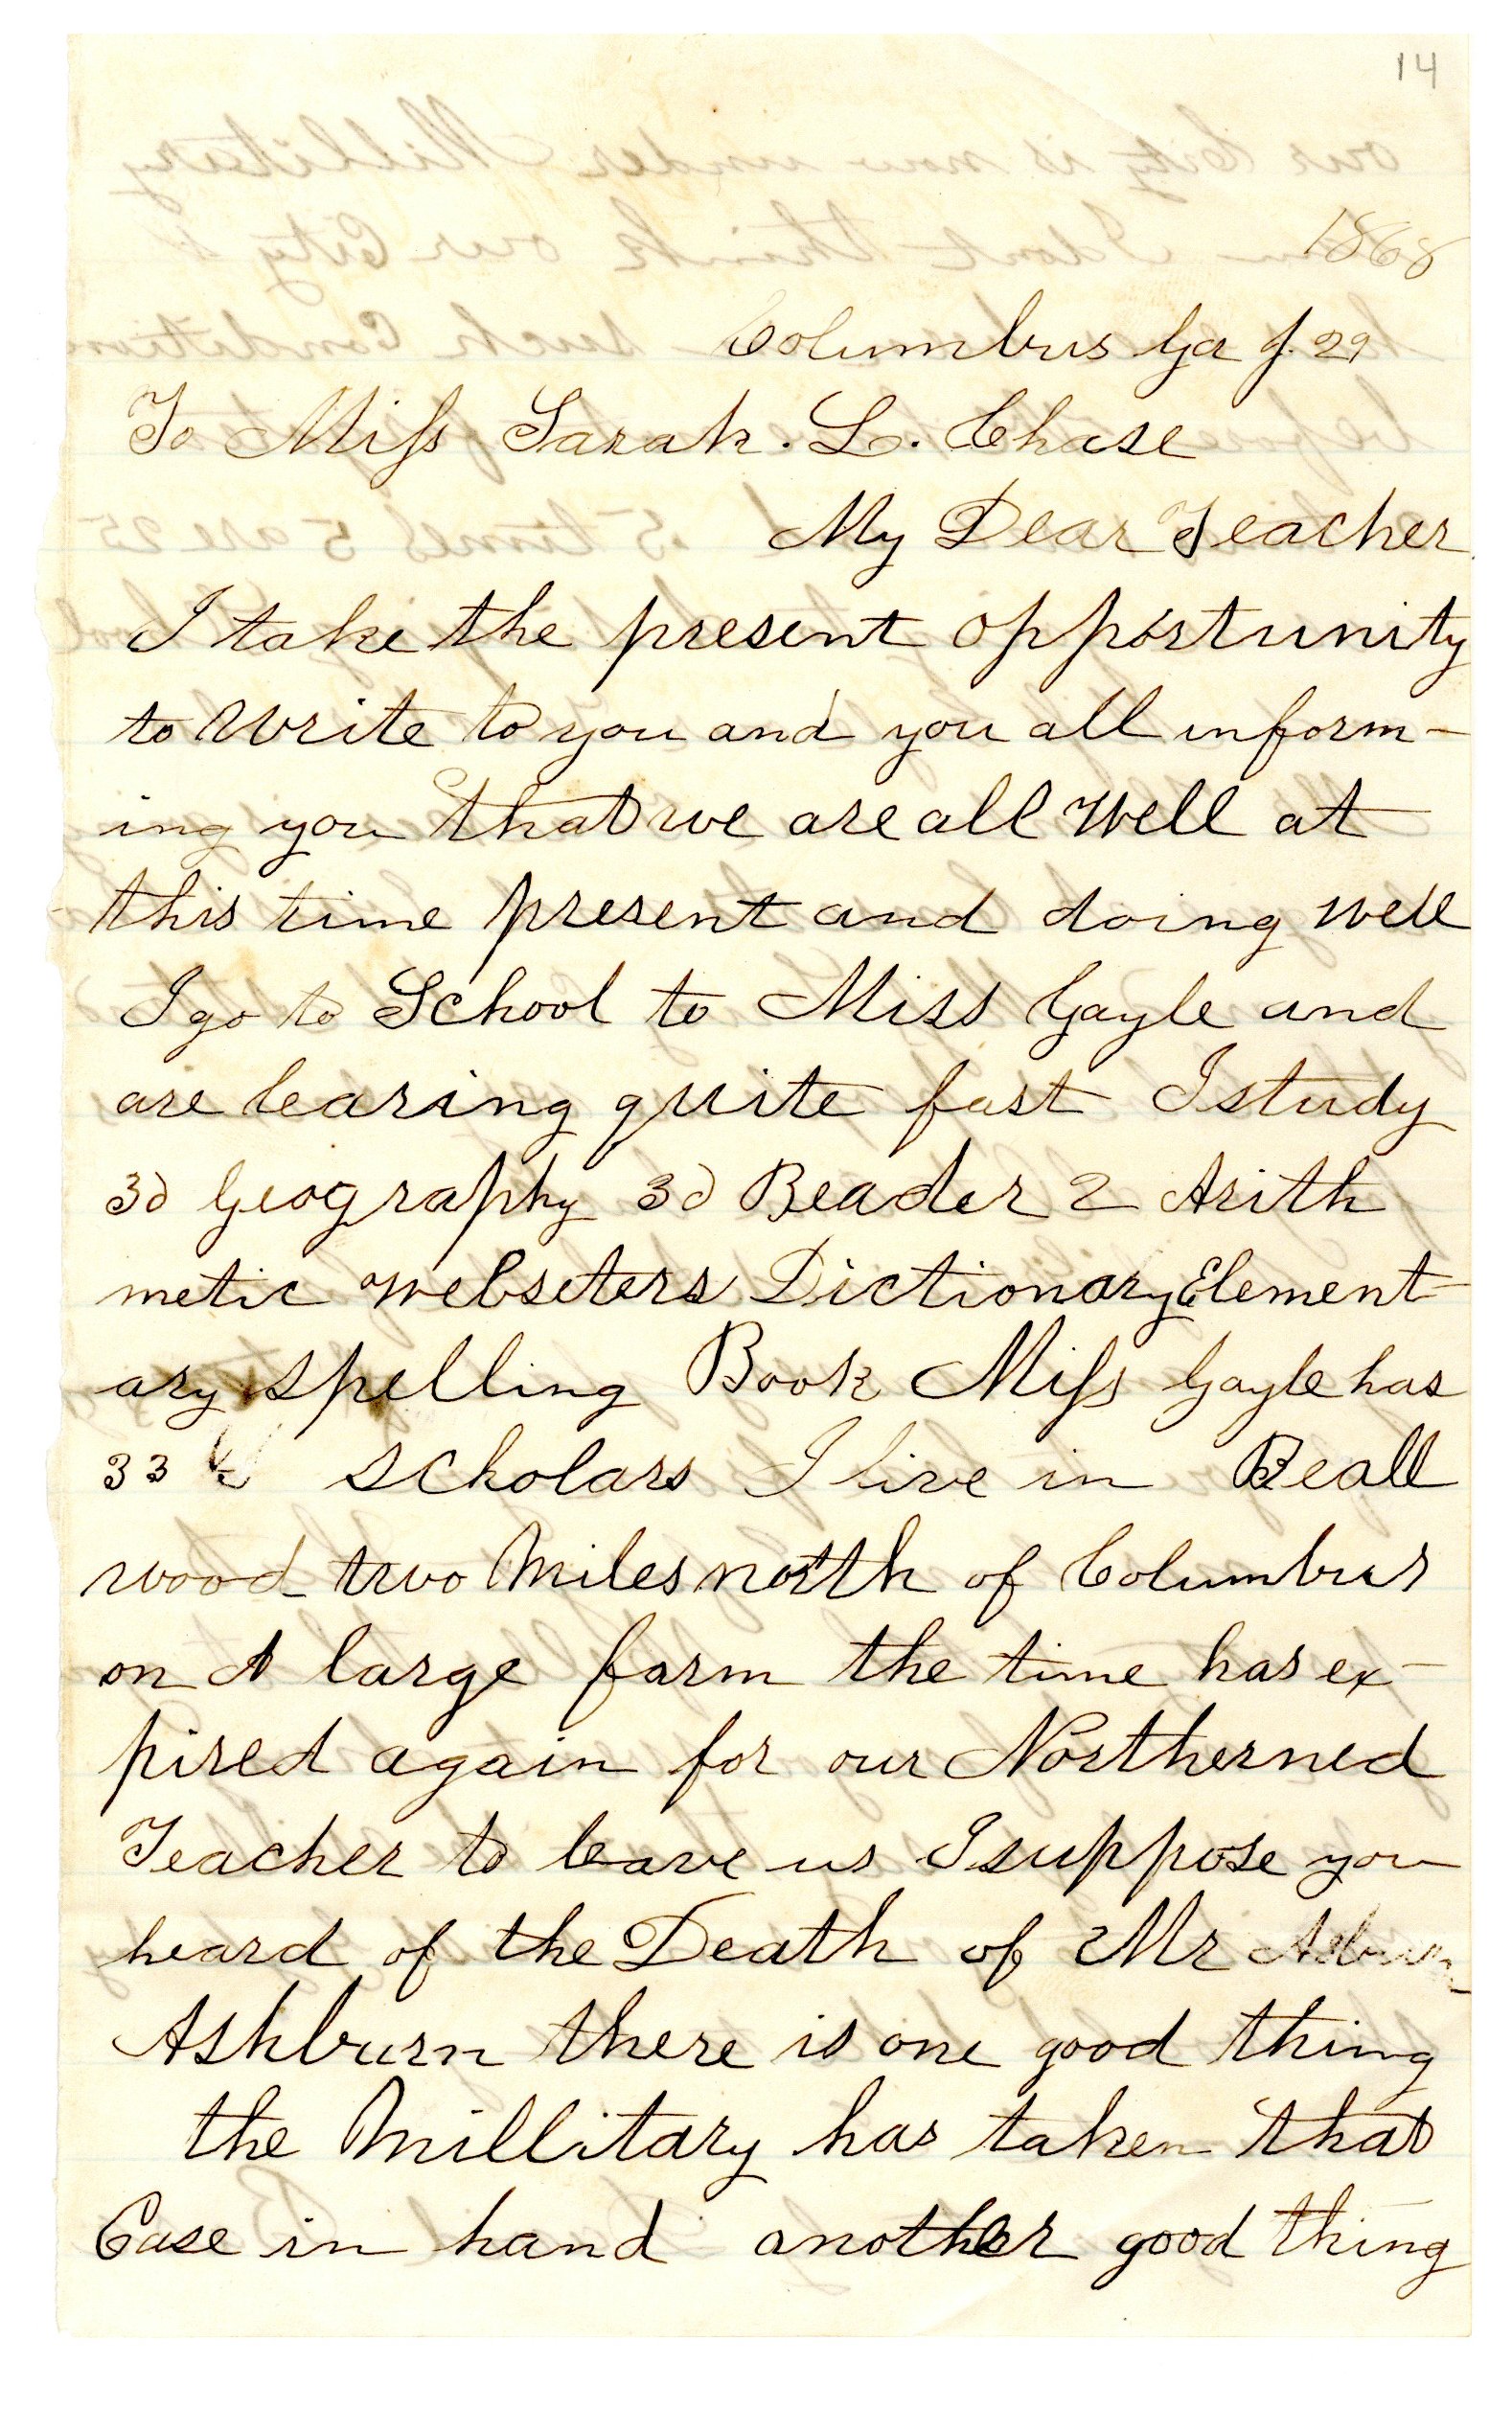 14
1868
Columbus Ga J. 29
To Miss Sarah. L. Chase
My Dear Teacher
I take the present opportunity
to Write to you and you all inform-
ing you that we are all Well at
this time present and doing well
I go to School to Miss Gayle and
are learing quite fast I study
3d Geography 3d Reader 2 Arith
metic Websters Dictionary Element
ary spelling Book Miss Gayle has
33 scholars I live in Beall
wood two Miles north of Columbus
on A large farm the time has ex-
pired again for our Northerned
Teacher to leave us I suppose you
heard of the Death of Mr
Ashburn there is one good thing
the Millitary has taken that
Case in hand another good thing